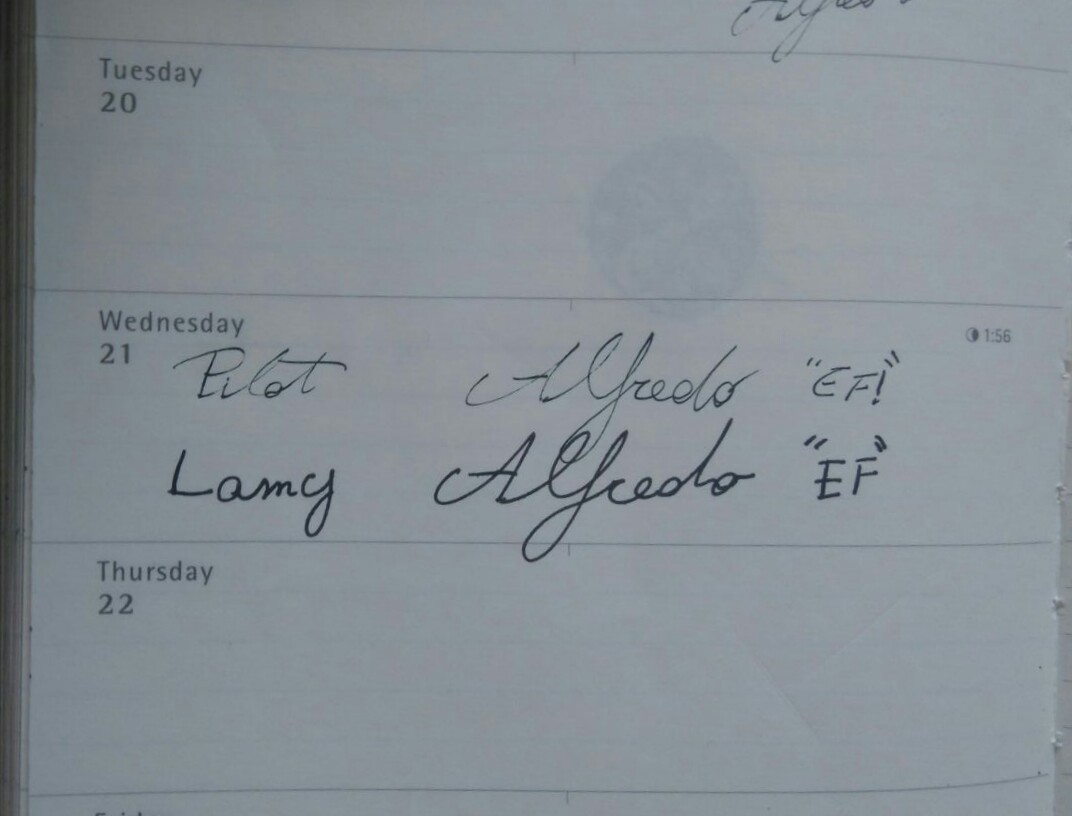 Tuesday
20
Wednesday
21
1:56
Pilot Alfredo "EF!"
Lamy Alfredo "EF"
Thursday
22